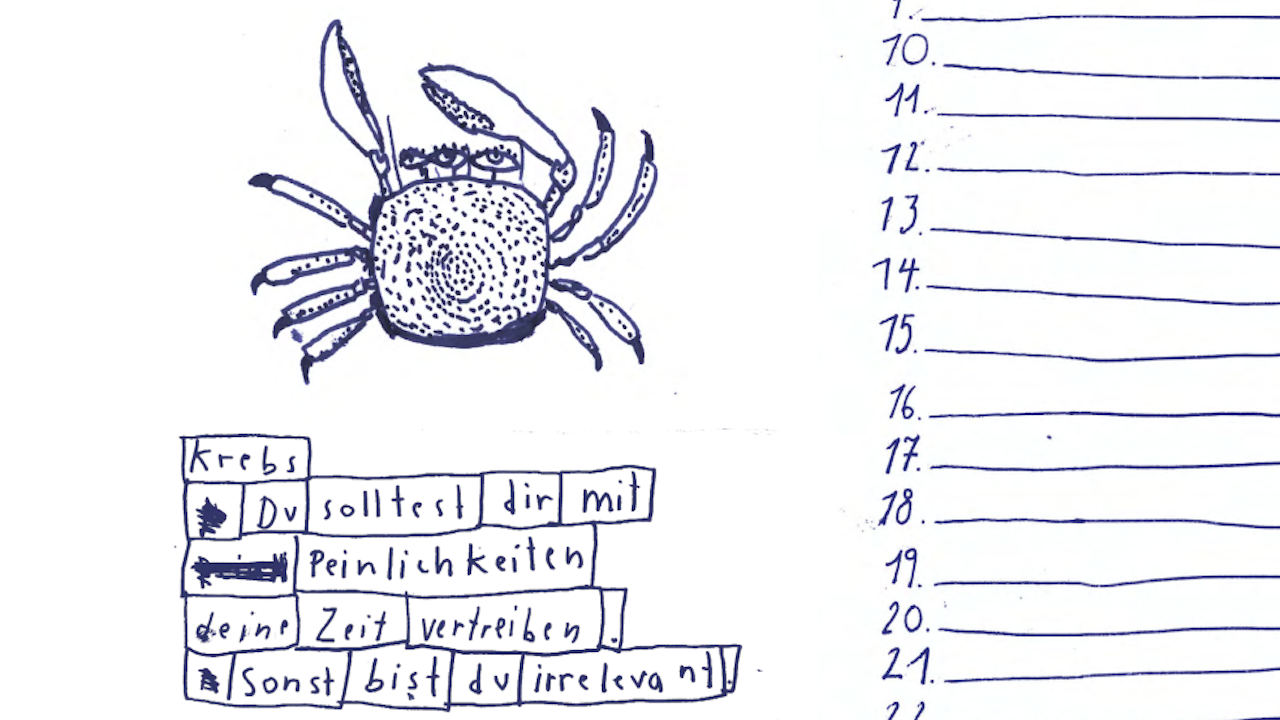 Krebs
Du solltest dir mit
Peinlichkeiten
deine Zeit vertreiben.
Sonst bist du irrelevant.
10.
11.
12.
13.
14.
15.
16.
17.
18.
19.
20.
21.